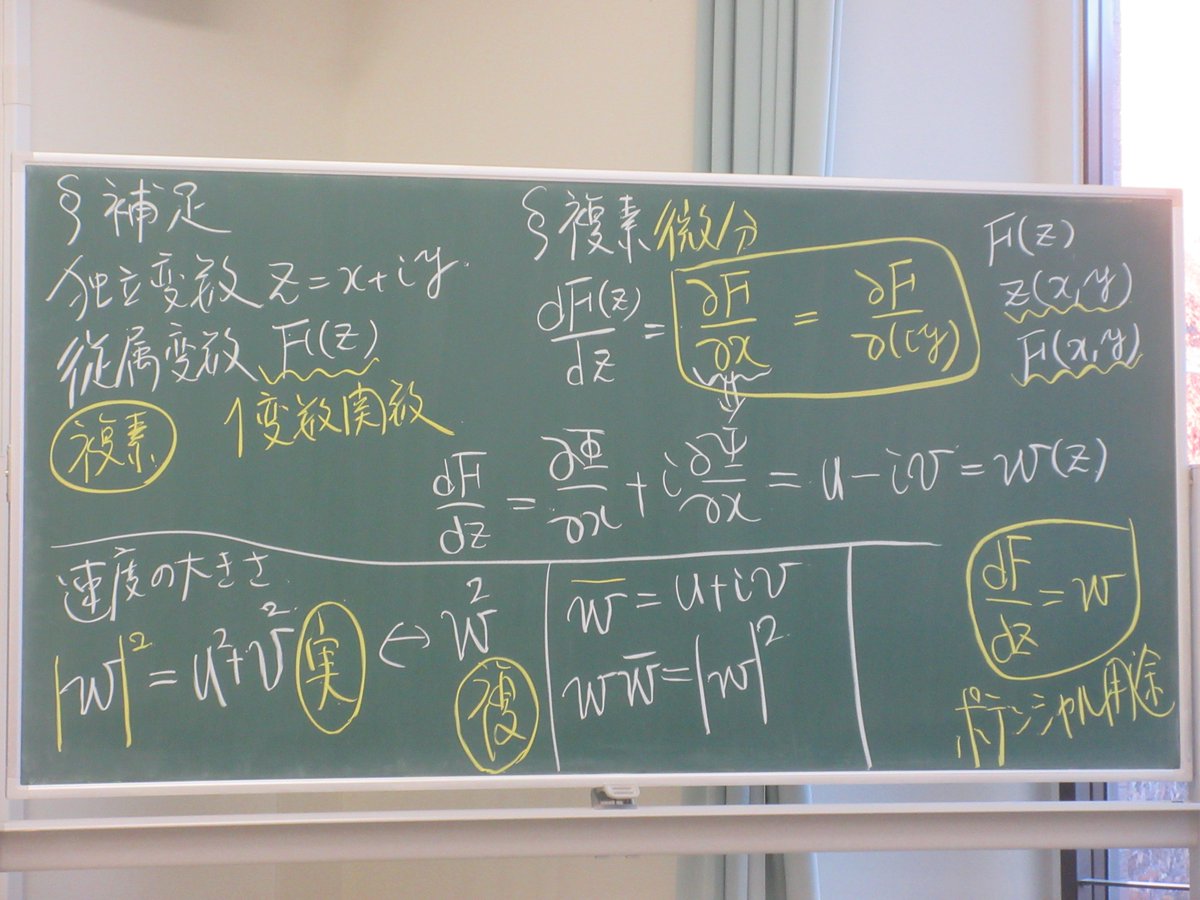 §補足
独立変数 z = x + iy
従属変数 F(z)
複素 1変数関数
§複素微分
dF(z)/dz = ∂F/∂x = ∂F/∂(iy)
F(z)
z(x,y)
F(x,y)
⇓
dF/dz = ∂Φ/∂x + i ∂Ψ/∂x = u − iv = w(z)
速度の大きさ
|w|² = u² + v² 実 ↔ w²
複
w̅ = u + iv
w w̅ = |w|²
dF/dz = w
ポテンシャル用途